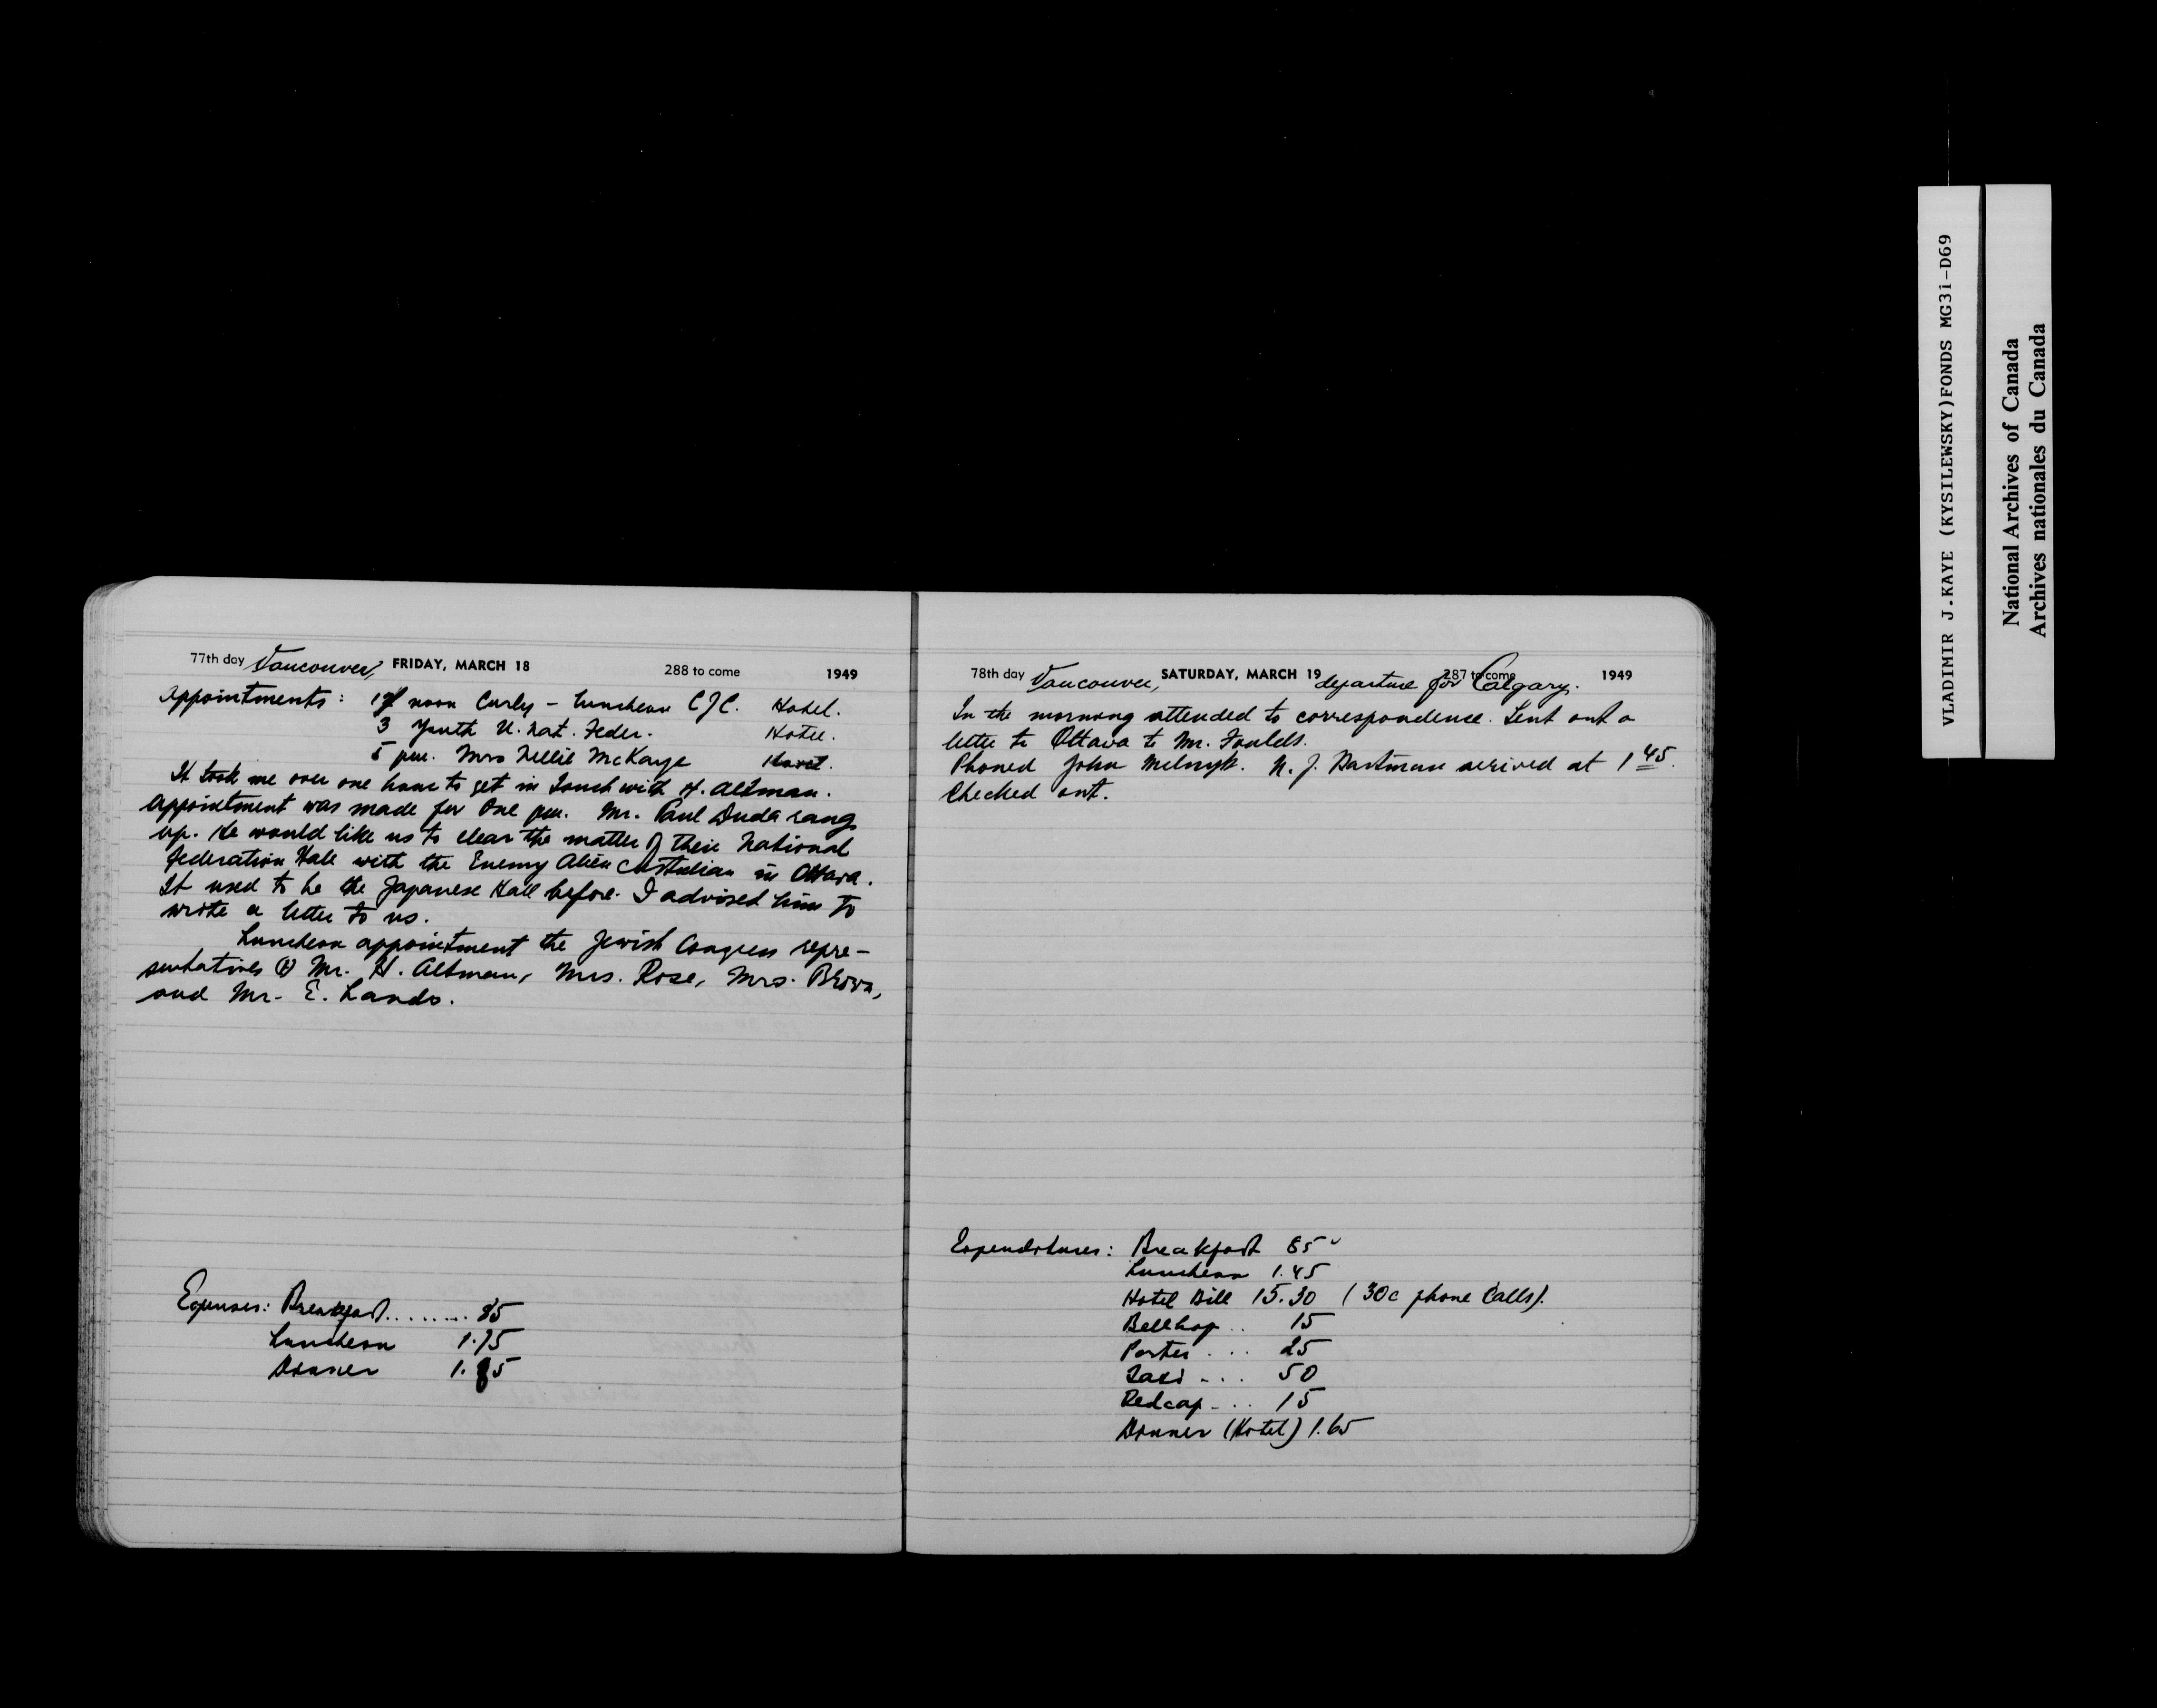 77th day Vancouver, FRIDAY, MARCH 18 288 to come 1949
Appointments: noon Curly - Luncheon CJC. Hotel.
3 Youth U. Nat. Feder. Hotel.
5 pm. Mrs Nellie McKaye Hotel.
It took me over one hour to get in touch with H. Altman.
Appointment was made for One pm. Mr. Paul Duda rang
up. He would like us to clear the matter of their National
Federation Hall with the Enemy Alien Custodian in Ottawa.
It used to be the Japanese Hall before. I advised him to
write a letter to us.
Luncheon appointment the Jewish Congress repre-
sentatives Mr. H. Altman, Mrs. Rose, Mrs. Brown,
and Mr. E. Lando.
Expenses: Breakfast........ 85
Luncheon 1.75
Dinner 1.85
78th day Vancouver, SATURDAY, MARCH 19 departure for Calgary. 287 to come 1949
In the morning attended to correspondence. Sent out a
letter to Ottawa to Mr. Foulds.
Phoned John Melnyk. N. J. Hartman arrived at 1 45.
Checked out.
Expenditures: Breakfast 85
Luncheon 1.45
Hotel Bill 15.30 (30c phone calls).
Bellhop .. 15
Porter . ... 25
Taxi - ... 50
Redcap - .. 15
Dinner (Hotel) 1.65
VLADIMIR J.KAYE (KYSILEWSKY)FONDS MG31-D69
National Archives of Canada
Archives nationales du Canada